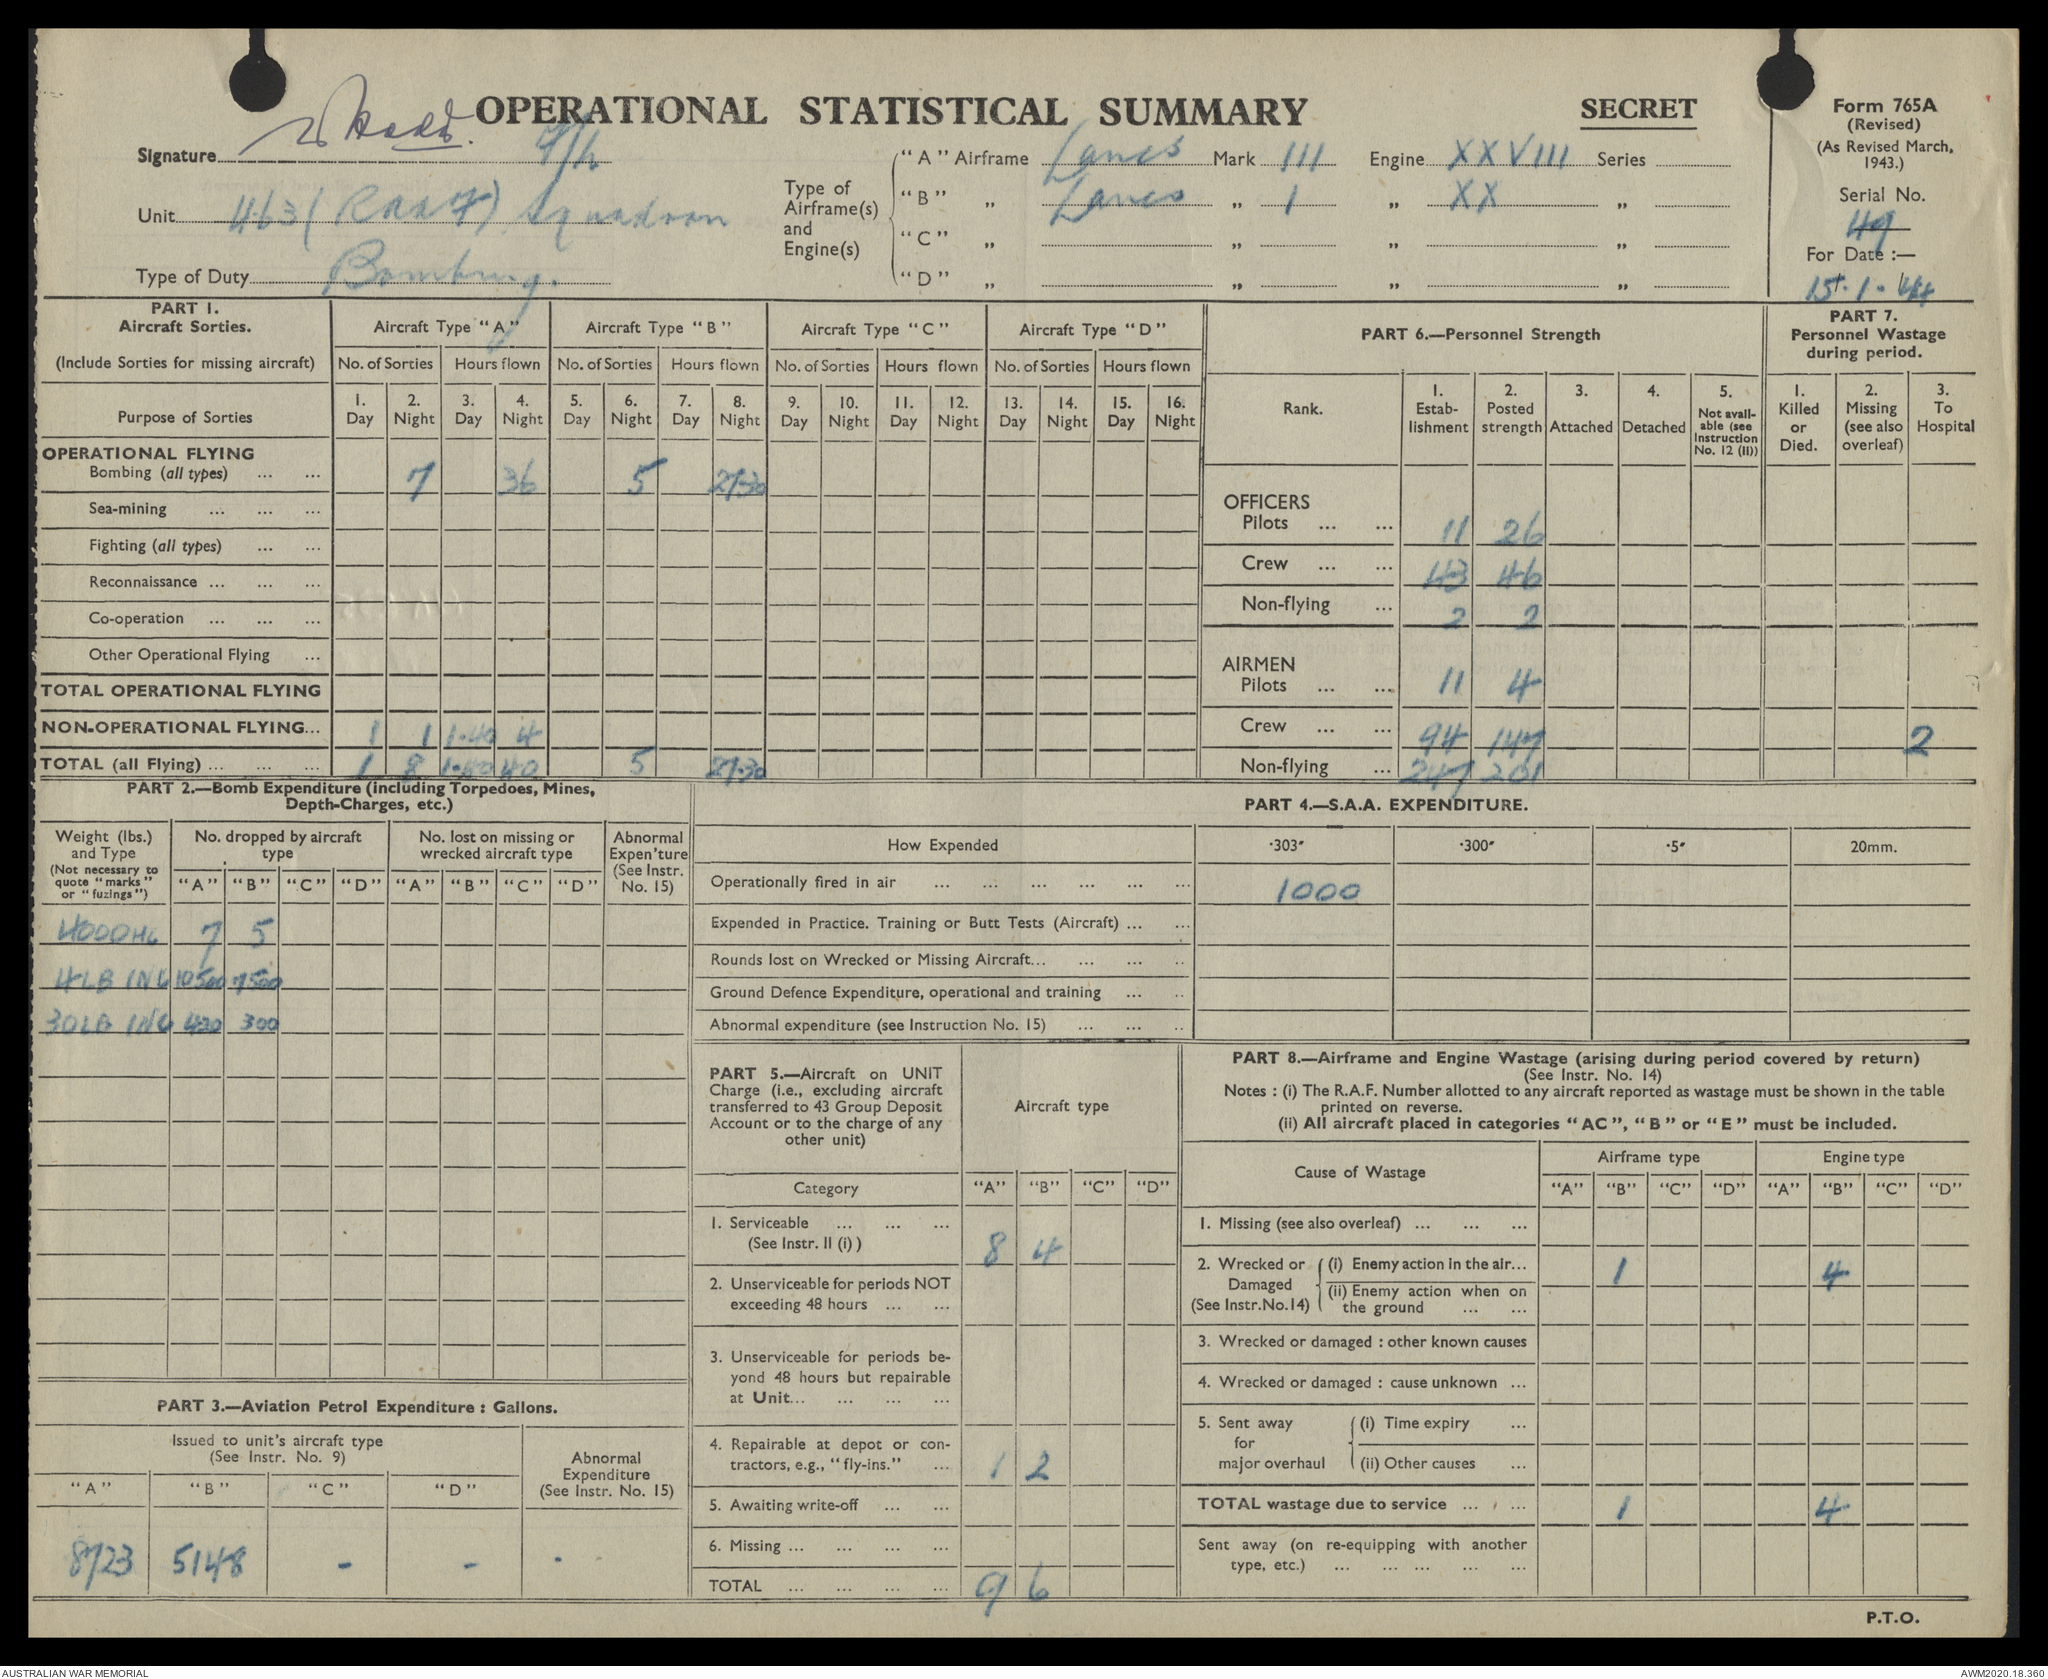 OPERATIONAL STATISTICAL SUMMARY
SECRET
Form 765A
(Revised)
(As Revised March,
1943.)
Serial No.
49
For Date :—
15.1.44
Signature
Unit 463 (RAAF) Squadron
Type of Duty Bombing.
Type of
Airframe(s)
and
Engine(s)
"A" Airframe Lancs Mark III Engine XXVIII Series
"B" „ Lancs „ 1 „ XX „
"C" „ „ „ „
"D" „ „ „ „
PART 1.
Aircraft Sorties.
(Include Sorties for missing aircraft)
Purpose of Sorties
Aircraft Type "A" Aircraft Type "B" Aircraft Type "C" Aircraft Type "D"
No. of Sorties Hours flown No. of Sorties Hours flown No. of Sorties Hours flown No. of Sorties Hours flown
1. Day 2. Night 3. Day 4. Night 5. Day 6. Night 7. Day 8. Night 9. Day 10. Night 11. Day 12. Night 13. Day 14. Night 15. Day 16. Night
OPERATIONAL FLYING
Bombing (all types) ... ... 7 36 5 27.30
Sea-mining ... ... ...
Fighting (all types) ... ...
Reconnaissance ... ... ...
Co-operation ... ... ...
Other Operational Flying ...
TOTAL OPERATIONAL FLYING
NON-OPERATIONAL FLYING... 1 1 1.40 4
TOTAL (all Flying) ... ... ... 1 8 1.40 40 5 27.30
PART 6.—Personnel Strength
Rank.
1. Estab-lishment
2. Posted strength
3. Attached
4. Detached
5. Not avail-able (see Instruction No. 12 (II))
OFFICERS
Pilots ... ... 11 26
Crew ... ... 43 46
Non-flying ... 2 2
AIRMEN
Pilots ... ... 11 4
Crew ... ... 94 147 2
Non-flying ... 247 201
PART 7.
Personnel Wastage
during period.
1. Killed or Died.
2. Missing (see also overleaf)
3. To Hospital
PART 2.—Bomb Expenditure (including Torpedoes, Mines,
Depth-Charges, etc.)
Weight (lbs.)
and Type
(Not necessary to
quote "marks"
or "fuzings")
No. dropped by aircraft
type
No. lost on missing or
wrecked aircraft type
Abnormal
Expen'ture
(See Instr.
No. 15)
"A" "B" "C" "D" "A" "B" "C" "D"
4000HC 7 5
4LB INC 10500 7500
30LB INC 420 300
PART 3.—Aviation Petrol Expenditure : Gallons.
Issued to unit's aircraft type
(See Instr. No. 9)
Abnormal
Expenditure
(See Instr. No. 15)
"A" "B" "C" "D"
8723 5148 - - -
PART 4.—S.A.A. EXPENDITURE.
How Expended ·303″ ·300″ ·5″ 20mm.
Operationally fired in air ... ... ... ... ... ... 1000
Expended in Practice. Training or Butt Tests (Aircraft) ... ...
Rounds lost on Wrecked or Missing Aircraft... ... ... ..
Ground Defence Expenditure, operational and training ... ..
Abnormal expenditure (see Instruction No. 15) ... ... ..
PART 5.—Aircraft on UNIT
Charge (i.e., excluding aircraft
transferred to 43 Group Deposit
Account or to the charge of any
other unit)
Aircraft type
Category "A" "B" "C" "D"
1. Serviceable ... ... ...
(See Instr. II (i) ) 8 4
2. Unserviceable for periods NOT
exceeding 48 hours ... ...
3. Unserviceable for periods be-
yond 48 hours but repairable
at Unit... ... ... ...
4. Repairable at depot or con-
tractors, e.g., "fly-ins." ... 1 2
5. Awaiting write-off ... ...
6. Missing ... ... ... ...
TOTAL ... ... ... ... 9 6
PART 8.—Airframe and Engine Wastage (arising during period covered by return)
(See Instr. No. 14)
Notes : (i) The R.A.F. Number allotted to any aircraft reported as wastage must be shown in the table
printed on reverse.
(ii) All aircraft placed in categories "AC", "B" or "E" must be included.
Cause of Wastage
Airframe type Engine type
"A" "B" "C" "D" "A" "B" "C" "D"
1. Missing (see also overleaf) ... ... ...
2. Wrecked or
Damaged
(See Instr.No.14)
(i) Enemy action in the air... 1 4
(ii) Enemy action when on
the ground ... ...
3. Wrecked or damaged : other known causes
4. Wrecked or damaged : cause unknown ...
5. Sent away
for
major overhaul
(i) Time expiry ...
(ii) Other causes ...
TOTAL wastage due to service ... ... ... 1 4
Sent away (on re-equipping with another
type, etc.) ... ... ... ... ...
P.T.O.
AUSTRALIAN WAR MEMORIAL
AWM2020.18.360